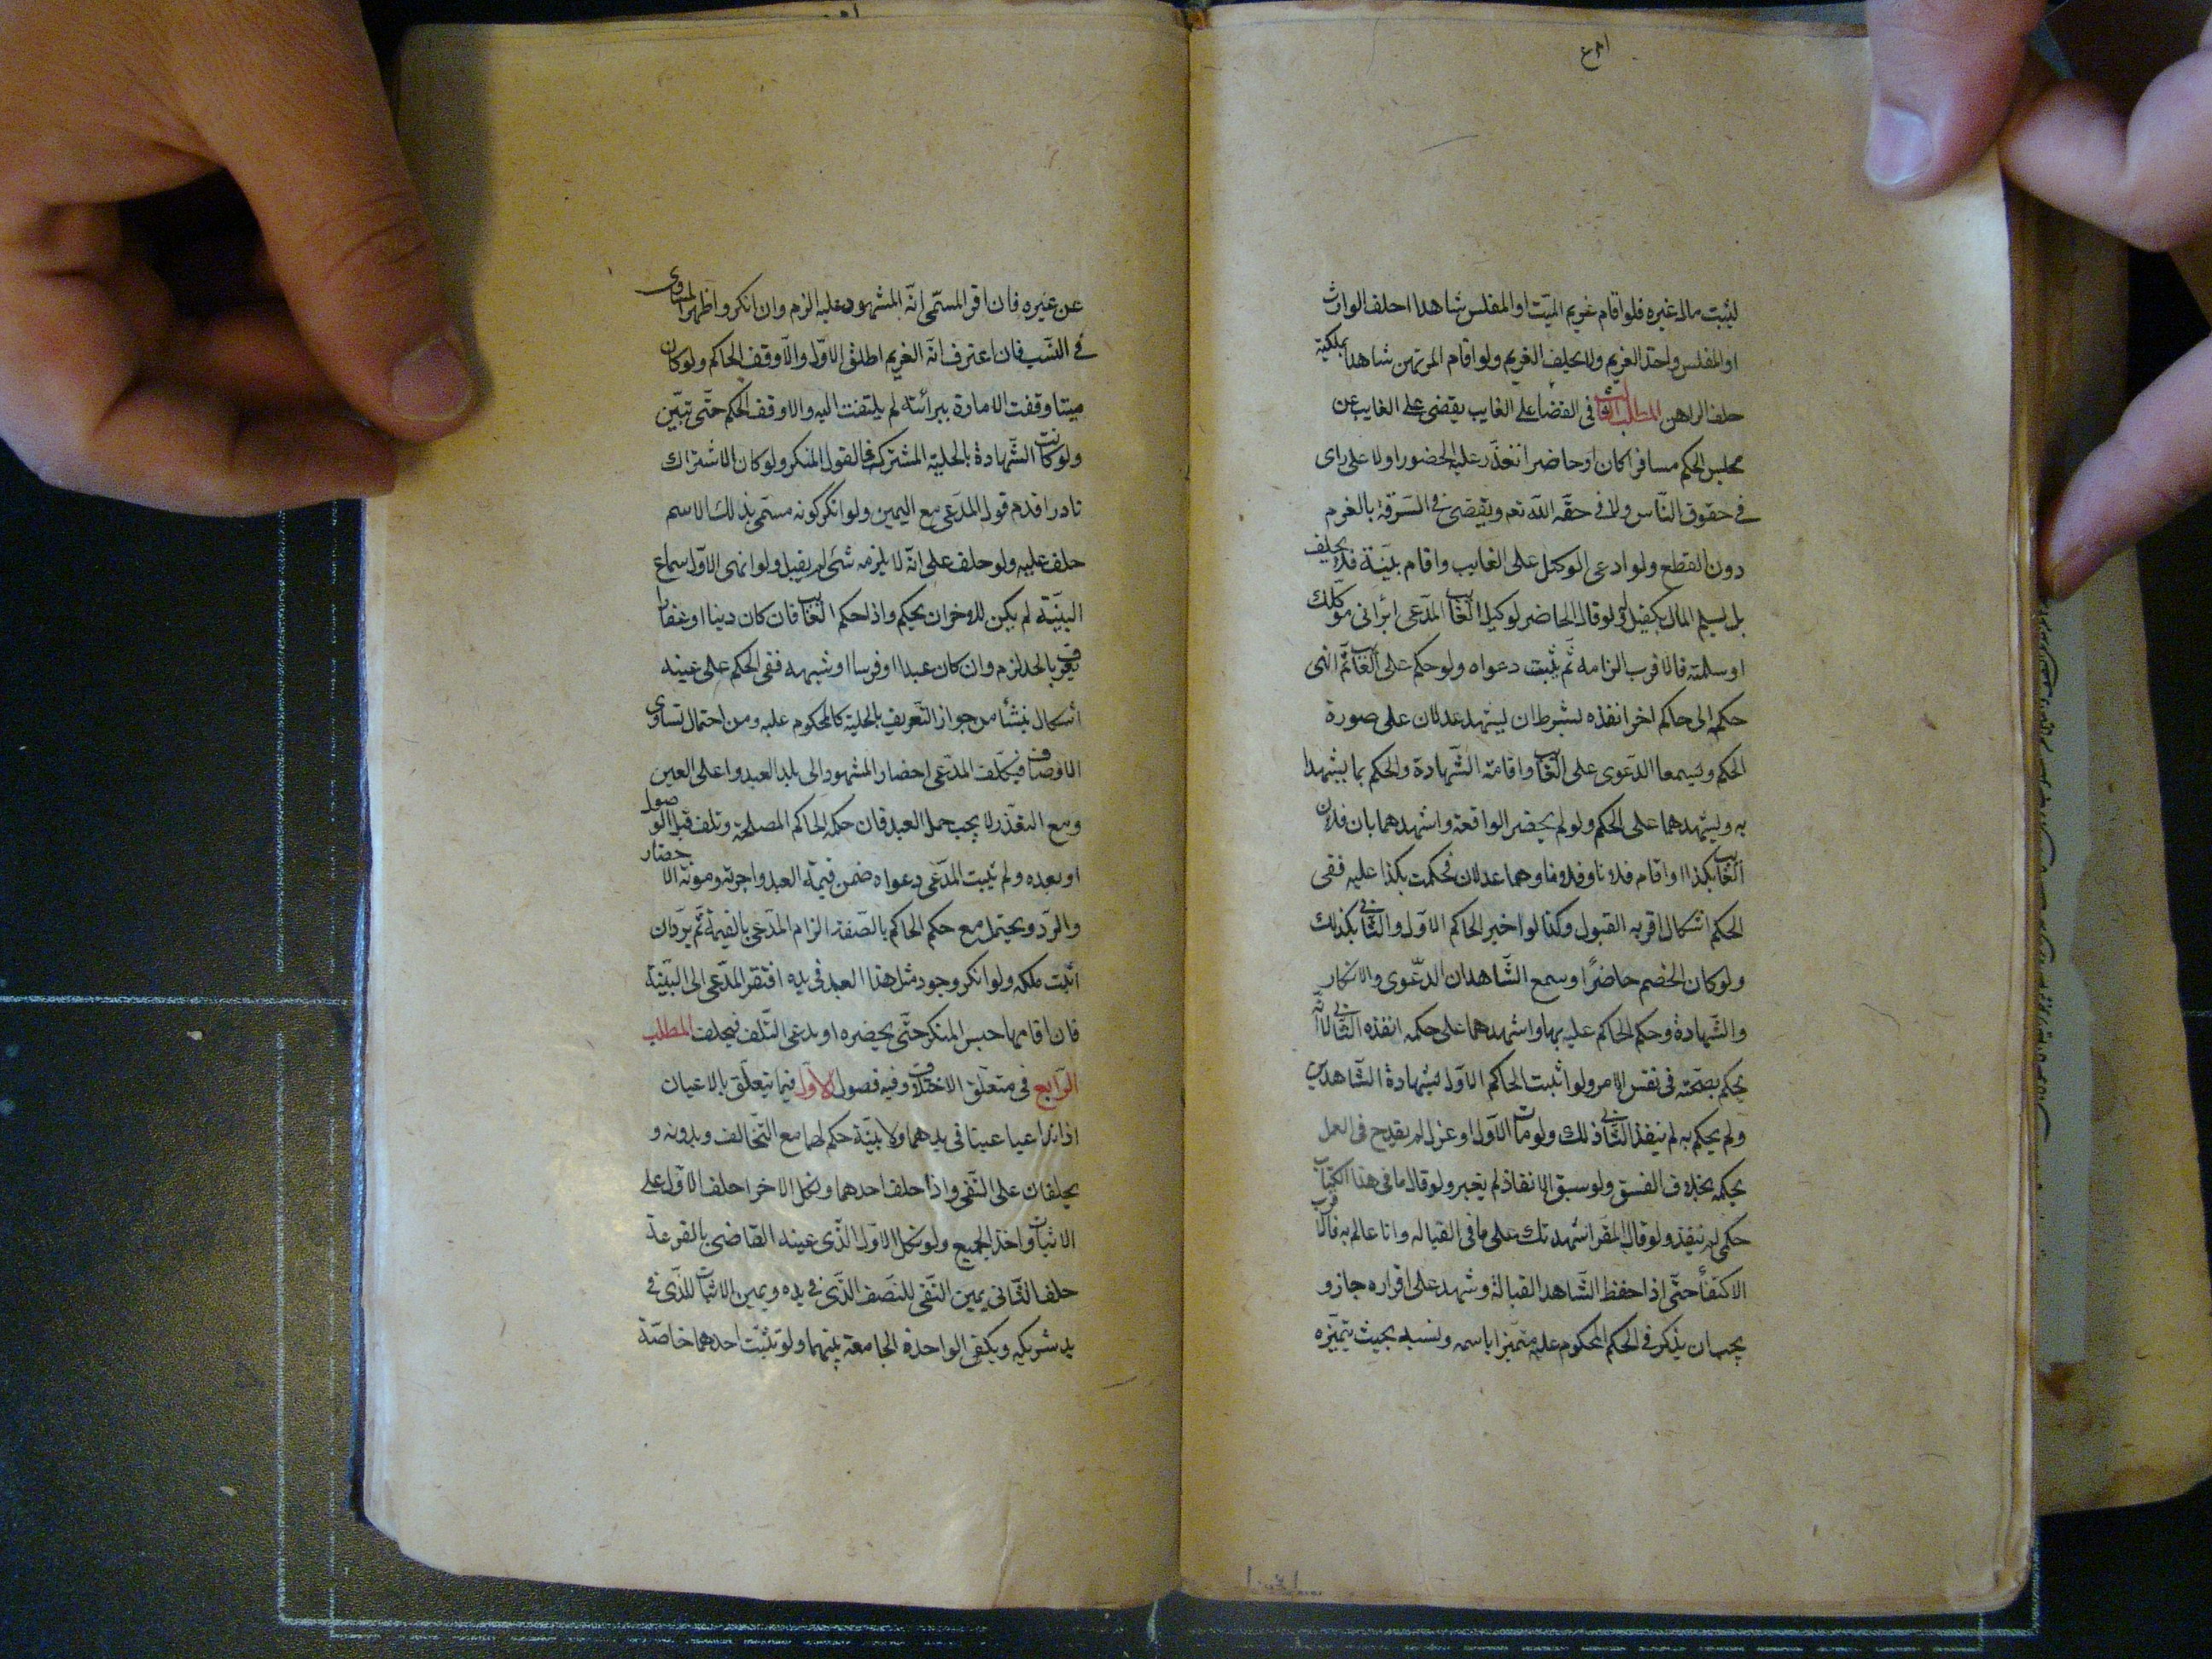 ليثبت مالا لغيره فلو اقام غريم الميّت او المفلس شاهدا احلف الوارث
او المفلس واخذ الغريم ولا يحلف الغريم ولو اقام المرتهن شاهدا بملكية
حلف الراهن المطلب الثالث فى القضا على الغايب يقضى على الغايب عن
مجلس الحكم مسافرا كان او حاضرا تعذّر عليه الحضور اولا على راى
فى حقوق النّاس ولا فى حقّه اللّه تعه ويقضى فى السّرقة بالغرم
دون القطع ولو ادعى الوكيل على الغايب واقام بيّنة فلا يحلف
بل يسلم المال بكفيل ولو قال الحاضر لوكيل الغايب المدّعى ابرأنى موكلك
او سلمته فالاقرب الزامه ثّم يثبت دعواه ولو حكم على الغايب ثّم انهى
حكمه الى حاكم اخر انفذه بشرط ان ليشهد عدلان على صورة
الحكم ويسمعا الدّعوى على الغايب واقامة الشّهادة والحكم بما يشهدا
به ويشهدهما على الحكم ولو لم يحضر الواقعة واشهدهما بان فلان
الغايب بكذا او اقام فلانا وفلانا وهما عدلان فحكمت بكذا عليه ففى
الحكم اشكال اقربه القبول وكذا لو اخبر الحاكم الاوّل والثّانى بكذلك
ولو كان الخصم حاضرًا وسمع الشّاهدان الدّعوى والانكار
والشّهادة وحكم الحاكم عليه بها واشهدهما على حكمه انفذه الثّانى لا انّه
يحكم بصحّته فى نفس الامر ولو اثبت الحاكم الاوّل بشهادة الشّاهدين
ولم يحكم به لم ينفذ الثّانى ذلك ولو مات الاوّل او عزل لم يقدح فى العمل
بحكمه بخلاف الفسق ولو سبق الانفاذ لم يغير ولو قال ما فى هذا الكتاب
حكمى لم ينفذ ولو قال المقر اشهدتك على ما فى القباله وانا عالم به فالاقرب
الاكتفأ حتّى اذا حفظ الشّاهد القبالة وشهد على اقراره جاز و
يجب ان يذكر فى الحكم المحكوم عليه متميّزا باسمه ونسبه بحيث يتميّزه
عن غيره فان اقر المسمّى انّه المشهود عليه الزم وان انكر واظهر المساوى
فى النسّب فان اعترف انّه الغريم اطلق الاوّل والّا وقف الحاكم ولو كان
ميتا وقفت الامارة ببرأئته لم يلتفت اليه والا وقف الحكم حتّى تبّين
ولو كانت الشّهادة بالحلية المشتركة فالقول المنكر ولو كان الاشتراك
نادرا قدم قول المدّعى مع اليمين ولو انكر كونه مسمّى بذلك الاسم
حلف عليه ولو حلف على انّه لا يلزمه شئ لم يقبل ولو انهى الاوّل سماع
البيّنة لم يكن للاخر ان يحكم واذا حكم الغايب فان كان دينا او عقارا
يعرف بالحد لزم وان كان عبدا او فرسا او شبهه ففى الحكم على عينه
اشكال ينشأ من جواز التّعريف بالحلية كالمحكوم عليه ومن احتمال تساوى
الاوصاف فيكلّف المدّعى احضار المشهود الى بلد العبد واعلى العين
ومع التعذّر لا يجب حمل العبد فان حكمه الحاكم المصلحة وتلف قبل الوصول
او بعده ولم يثبت المدّعى دعواه ضمن قيمة العبد واجرته ومونة الاحضار
والرّد ويحتمل مع حكم الحاكم بالصّفة الزام المدّعى بالقيمة ثّم يردّ ان
اثبت ملكه ولو انكر وجود مثل هذا العبد فى يده افتقر المدّعى الى البّينة
فان اقامها حبس المنكر حتّى يحضره او يدعى التّلف فيحلف المطلب
الرّابع فى متعلّق الاختلاف وفيه فصول الاوّل فيما يتعلّق بالاعيان
اذا تداعيا عينا فى يدهما ولا بيّنة حكم لهما مع التّحالف وبدونه و
يحلفان على النّفى واذا حلف احدهما ونكل الاخر احلف الاوّل على
الاثبات واخذ الجميع ولو نكل الاوّل الذّى عينه القاضى بالقرعة
حلف الثّانى يمين النّفى للنصف الذّى فى يده ويمين الاثبات للذّى فى
يد شريكه ويكفى الواحدة الجامعة بينهما ولو يثبّت احدهما خاصّة